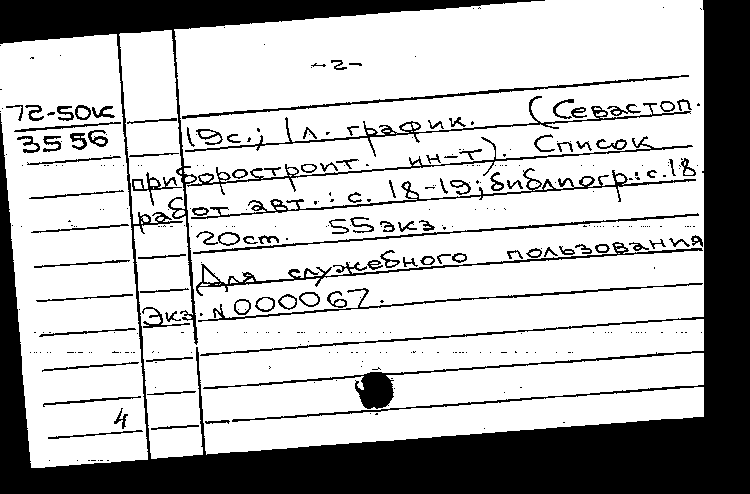 -2-
72-50к
3556
19с.; 1 л. график. (Севастоп.
приборостроит. ин-т). Список
работ авт.: с. 18-19; библиогр.: с. 18.
20см. 55 экз.
Для служебного пользования
Экз. N 000067.
4